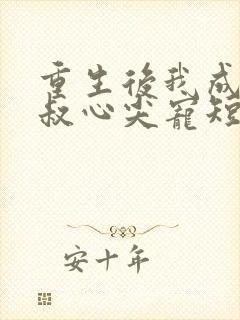 重生後我成
叔心尖寵短
安十年